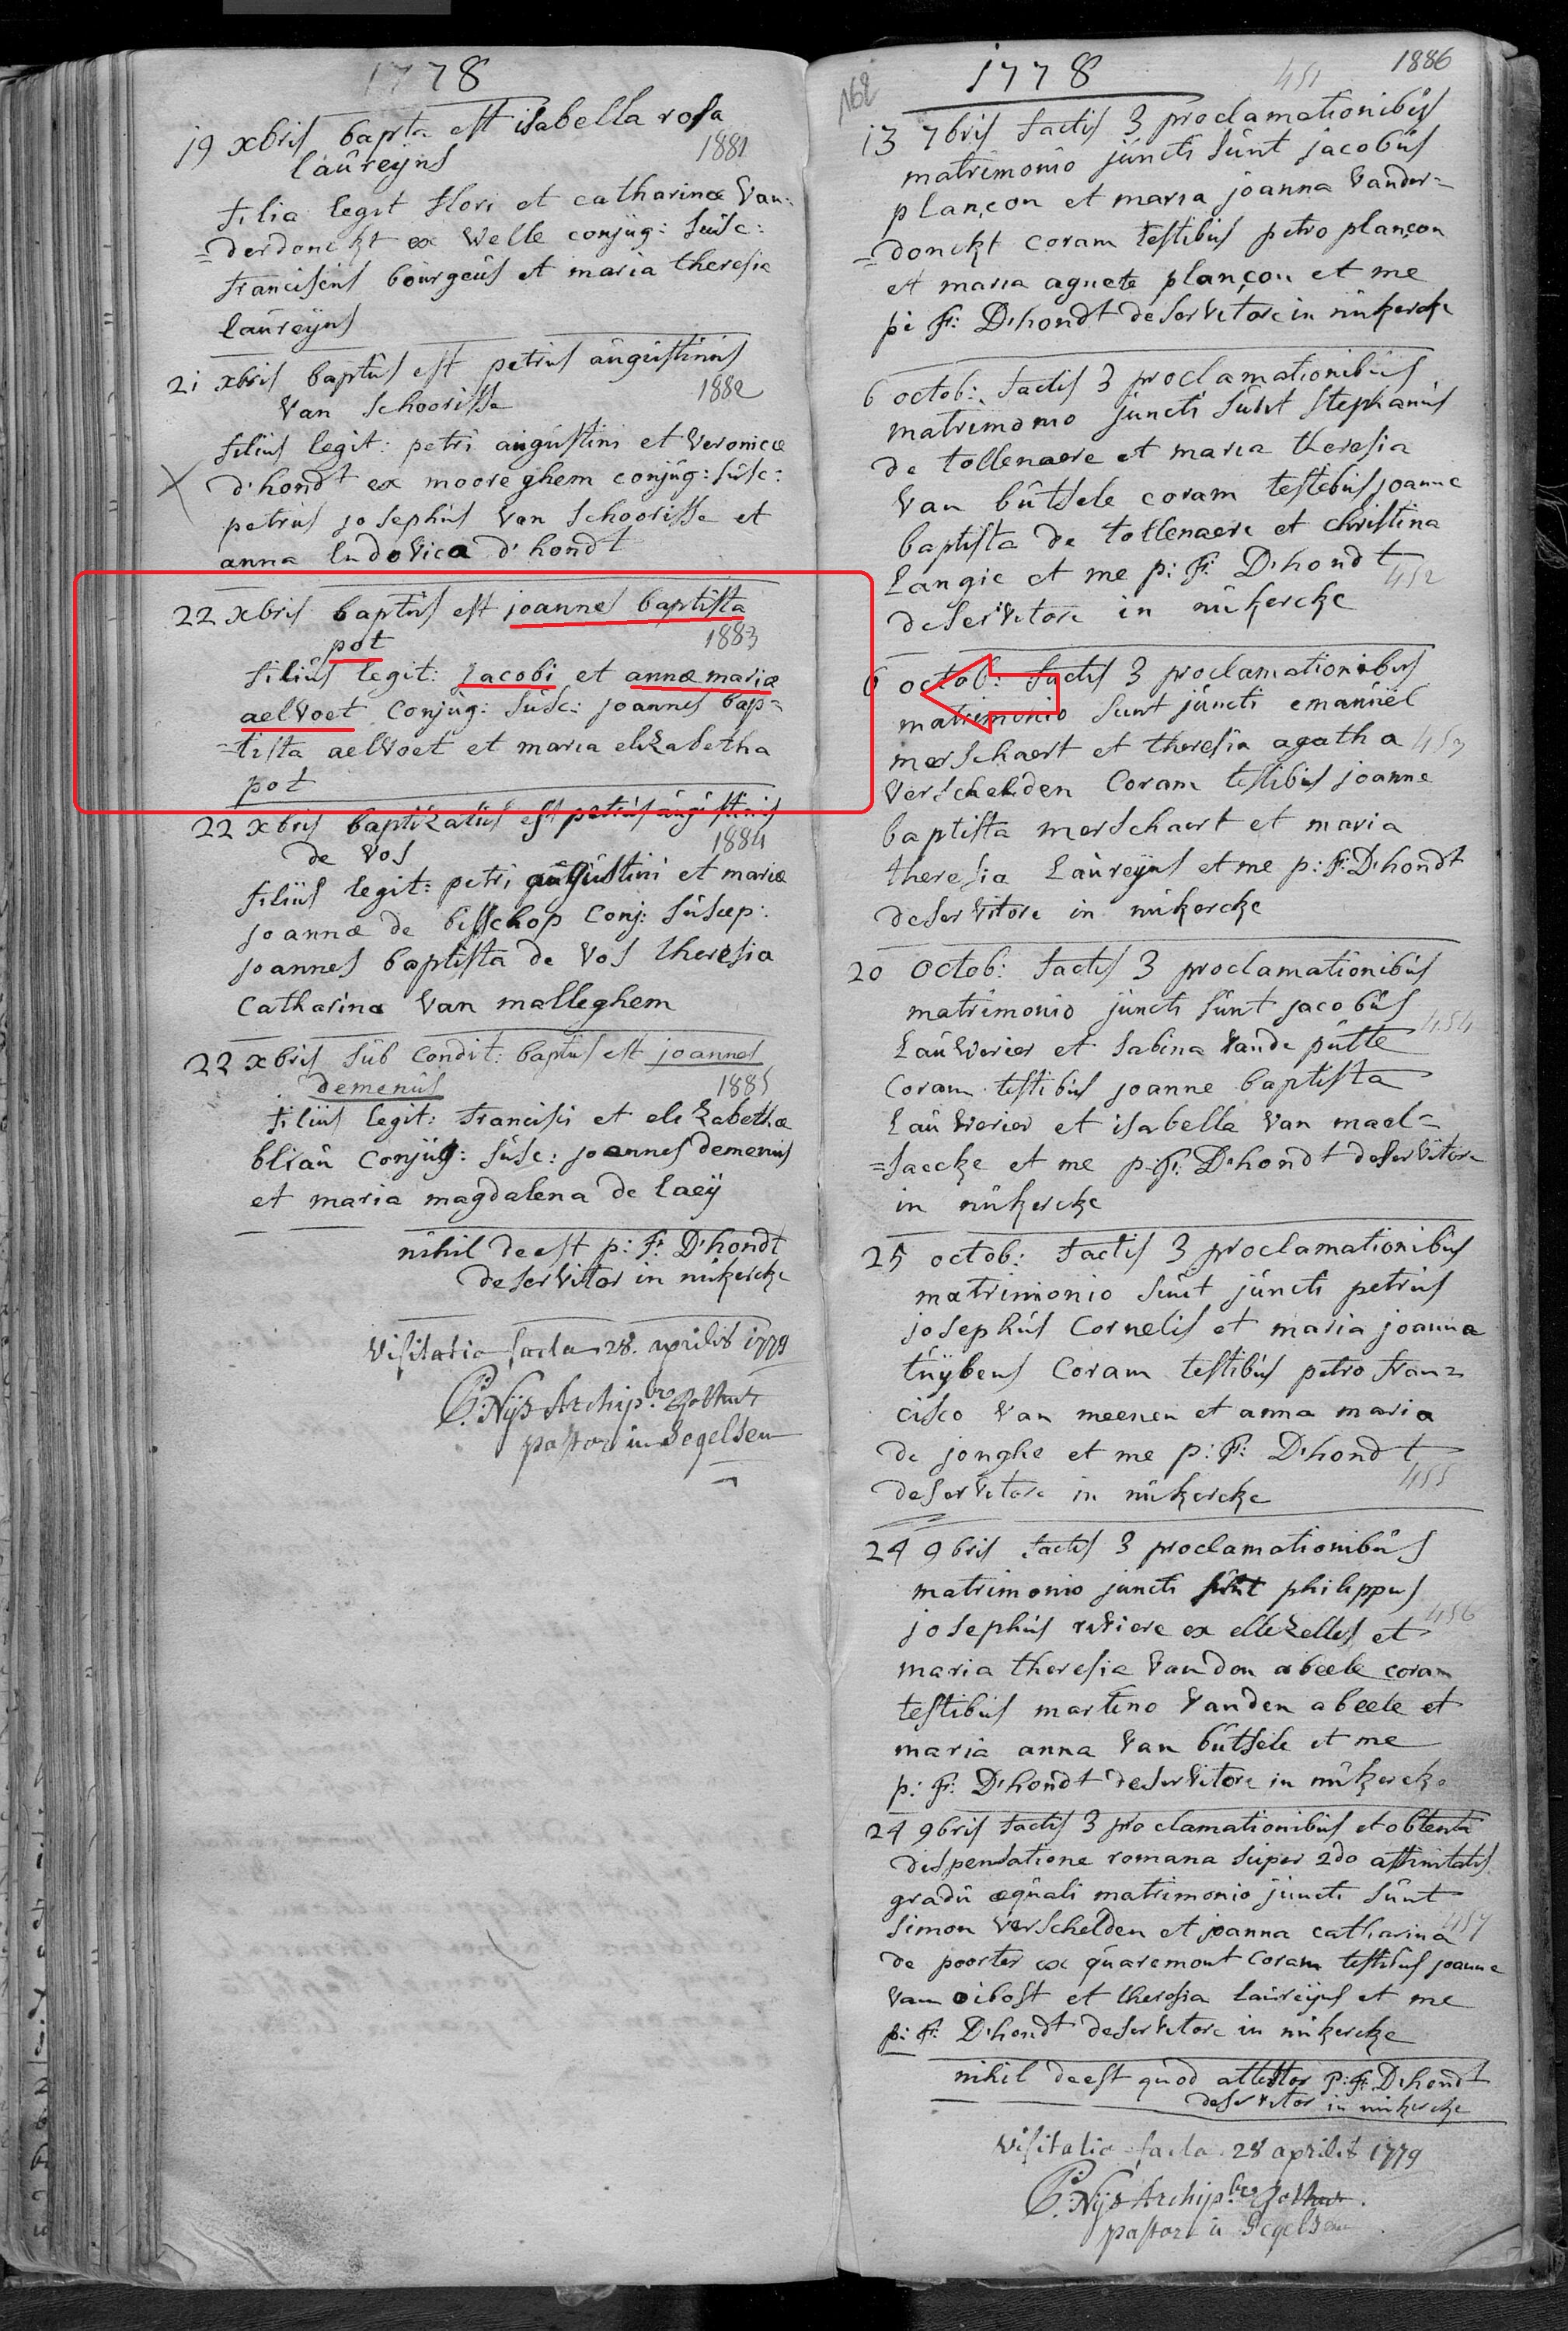 1778
19 xbris bapta est isabella rosa
laureijns
1881
filia legit flori et catharinæ Van=
=derdonckt ex Welle conjug: Susc:
franciscus bourgeus et maria theresia
laureijns
21 xbris baptus est petrus augustinus
Van Schoorisse
1882
filius legit: petri augustini et Veronicæ
d'hondt ex mooreghem conjug: Susc:
petrus josephus Van Schoorisse et
anna ludovica d'hondt
22 xbris baptus est joannes baptista
pot
1883
filius legit: Jacobi et annæ mariæ
aelvoet Conjug: Susc: joannes bap=
=tista aelvoet et maria elizabetha
pot
22 xbris baptizatus est petrus augustinus
de Vos
1884
filius legit: petri augustini et mariæ
joannæ de bisschop Conj: Suscep:
joannes baptista de Vos theresia
Catharina Van malleghem
22 xbris Sub Condit: baptus est joannes
demenus
1885
filius legit: francisci et elizabethæ
bliau Conjug: Susc: joannes demenus
et maria magdalena de laeij
nihil deest p: F: D'hondt
deservitor in nukercke
Visitatio facta 28. aprilis 1779
P: Nijs Archip.br
pastor in Segelsem
N62
1778
451
1886
13 7bris factis 3 proclamationibus
matrimonio juncti Sunt jacobus
plançon et maria joanna Vander=
=donckt coram testibus petro plançon
et maria agnete plançon et me
p: F: D'hondt deservitore in nukercke
6 octob: factis 3 proclamationibus
matrimonio juncti Sunt Stephanus
de tollenaere et maria theresia
Van butsele coram testibus joanne
baptista de tollenaere et christina
Langie et me p: F: D'hondt
452
deservitore in nukercke
6 octob: factis 3 proclamationibus
matrimonio Sunt juncti emanuel
merschaert et theresia agatha
453
Verschelden Coram testibus joanne
baptista merschaert et maria
theresia Laureijns et me p: F: D'hondt
deservitore in nukercke
20 octob: factis 3 proclamationibus
matrimonio juncti Sunt jacobus
454
Lauwerier et Sabina Vande putte
Coram testibus joanne baptista
Lauwerier et isabella Van mael=
=saecke et me p: F: D'hondt deservitore
in nukercke
25 octob: factis 3 proclamationibus
matrimonio Sunt juncti petrus
josephus Cornelis et maria joanna
tuijbens Coram testibus petro fran=
cisco Van meenen et anna maria
de jonghe et me p: F: D'hondt
455
deservitore in nukercke
24 9bris factis 3 proclamationibus
matrimonio juncti Sunt philippus
456
josephus riviere ex ellezelles et
maria theresia Vanden abeele coram
testibus martino Vanden abeele et
maria anna Van butsele et me
p: F: D'hondt deservitore in nukercke
24 9bris factis 3 proclamationibus et obtenta
dispensatione romana super 2do affinitatis
gradu æquali matrimonio juncti Sunt
457
Simon Verschelden et joanna catharina
de poorter ex quaremont Coram testibus joanne
Van oibost et theresia laureijns et me
p: F: D'hondt deservitore in nukercke
nihil deest quod attestor p: F: D'hondt
deservitor in nukercke
Visitatio facta 28 aprilis 1779
P: Nijs Archip.br
pastor in Segelsem